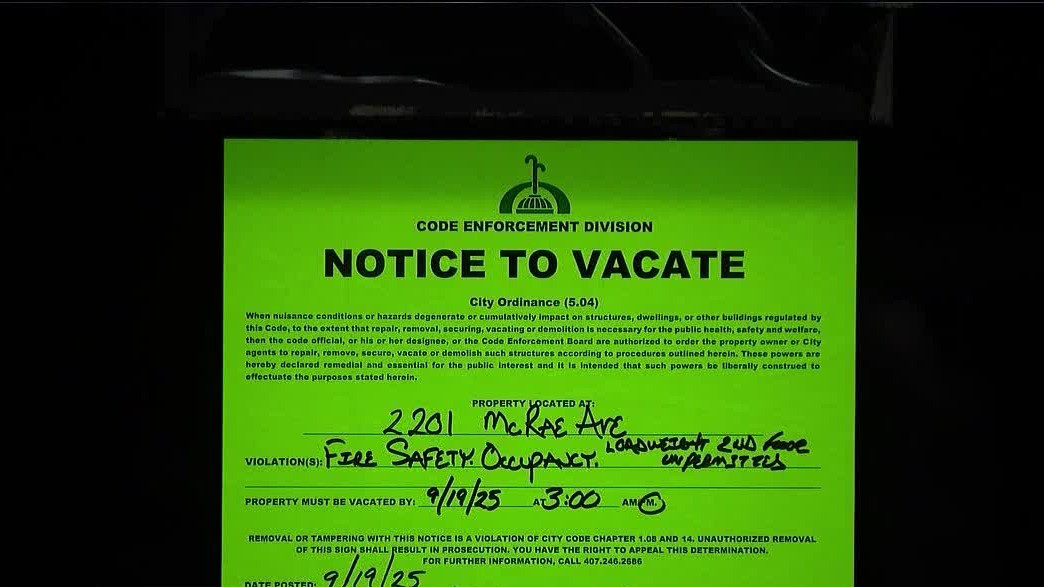 CODE ENFORCEMENT DIVISION
NOTICE TO VACATE
City Ordinance (5.04)
When nuisance conditions or hazards degenerate or cumulatively impact on structures, dwellings, or other buildings regulated by
this Code, to the extent that repair, removal, securing, vacating or demolition is necessary for the public health, safety and welfare,
then the code official, or his or her designee, or the Code Enforcement Board are authorized to order the property owner or City
agents to repair, remove, secure, vacate or demolish such structures according to procedures outlined herein. These powers are
hereby declared remedial and essential for the public interest and it is intended that such powers be liberally construed to
effectuate the purposes stated herein.
PROPERTY LOCATED AT:
2201 McRAE AVE
VIOLATION(S): FIRE SAFETY. OCCUPANCY. LOADWEIGHT 2ND FLOOR
UNPERMITTED
PROPERTY MUST BE VACATED BY: 9/19/25 AT 3:00 AM/PM.
REMOVAL OR TAMPERING WITH THIS NOTICE IS A VIOLATION OF CITY CODE CHAPTER 1.08 AND 14. UNAUTHORIZED REMOVAL
OF THIS SIGN SHALL RESULT IN PROSECUTION. YOU HAVE THE RIGHT TO APPEAL THIS DETERMINATION.
FOR FURTHER INFORMATION, CALL 407.246.2686
DATE POSTED: 9/19/25